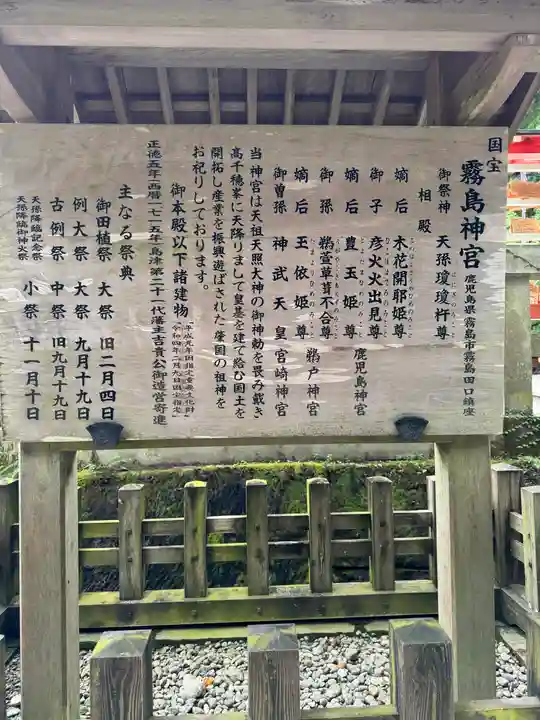 国宝
霧島神宮 鹿児島県霧島市霧島田口鎮座
御祭神 天孫瓊瓊杵尊
相殿
嫡后 木花開耶姫尊
御子 彦火火出見尊 鹿児島神宮
嫡后 豊玉姫尊
御孫 鵜萱草葺不合尊 鵜戸神宮
嫡后 玉依姫尊
御曽孫 神武天皇 宮崎神宮
当神宮は天祖天照大神の御神勅を畏み戴き
高千穂峯に天降りまして皇基を建て給む国土を
開拓し産業を振興遊ばされた肇国の祖神を
お祀りしております。
御本殿以下諸建物
正徳五年(西暦一七一五年)島津第二十一代藩主吉貴公御造営寄進
主なる祭典
御田植祭 大祭 旧二月四日
例大祭 大祭 九月十九日
古例祭 中祭 旧九月十九日
天孫降臨記念祭
天孫降臨御神火祭 小祭 十一月十日